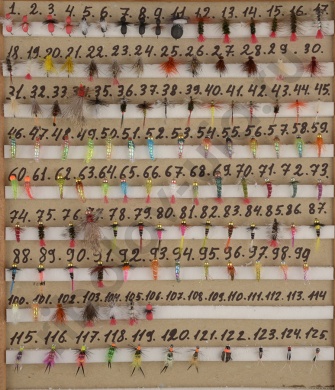 1. 2. 3. 4. 5. 6. 7. 8. 9. 11. 12. 13. 14. 15. 16. 17.
18. 19. 20. 21. 22. 23. 24. 25. 26. 27. 28. 29. 30.
31. 32. 33. 34. 35. 36. 37. 38. 39. 40. 41. 42. 43. 44. 45.
46. 47. 48. 49. 50. 51. 52. 53. 54. 55. 56. 57. 58. 59.
60. 61. 62. 63. 64. 65. 66. 67. 68. 69. 70. 71. 72. 73.
74. 75. 76. 77. 78. 79. 80. 81. 82. 83. 84. 85. 86. 87.
88. 89. 90. 91. 92. 93. 94. 95. 96. 97. 98. 99
100. 101. 102. 103. 104. 105. 106. 107. 108. 109. 110. 111. 112. 113. 114
115. 116. 117. 118. 119. 120. 121. 122. 123. 124. 125.